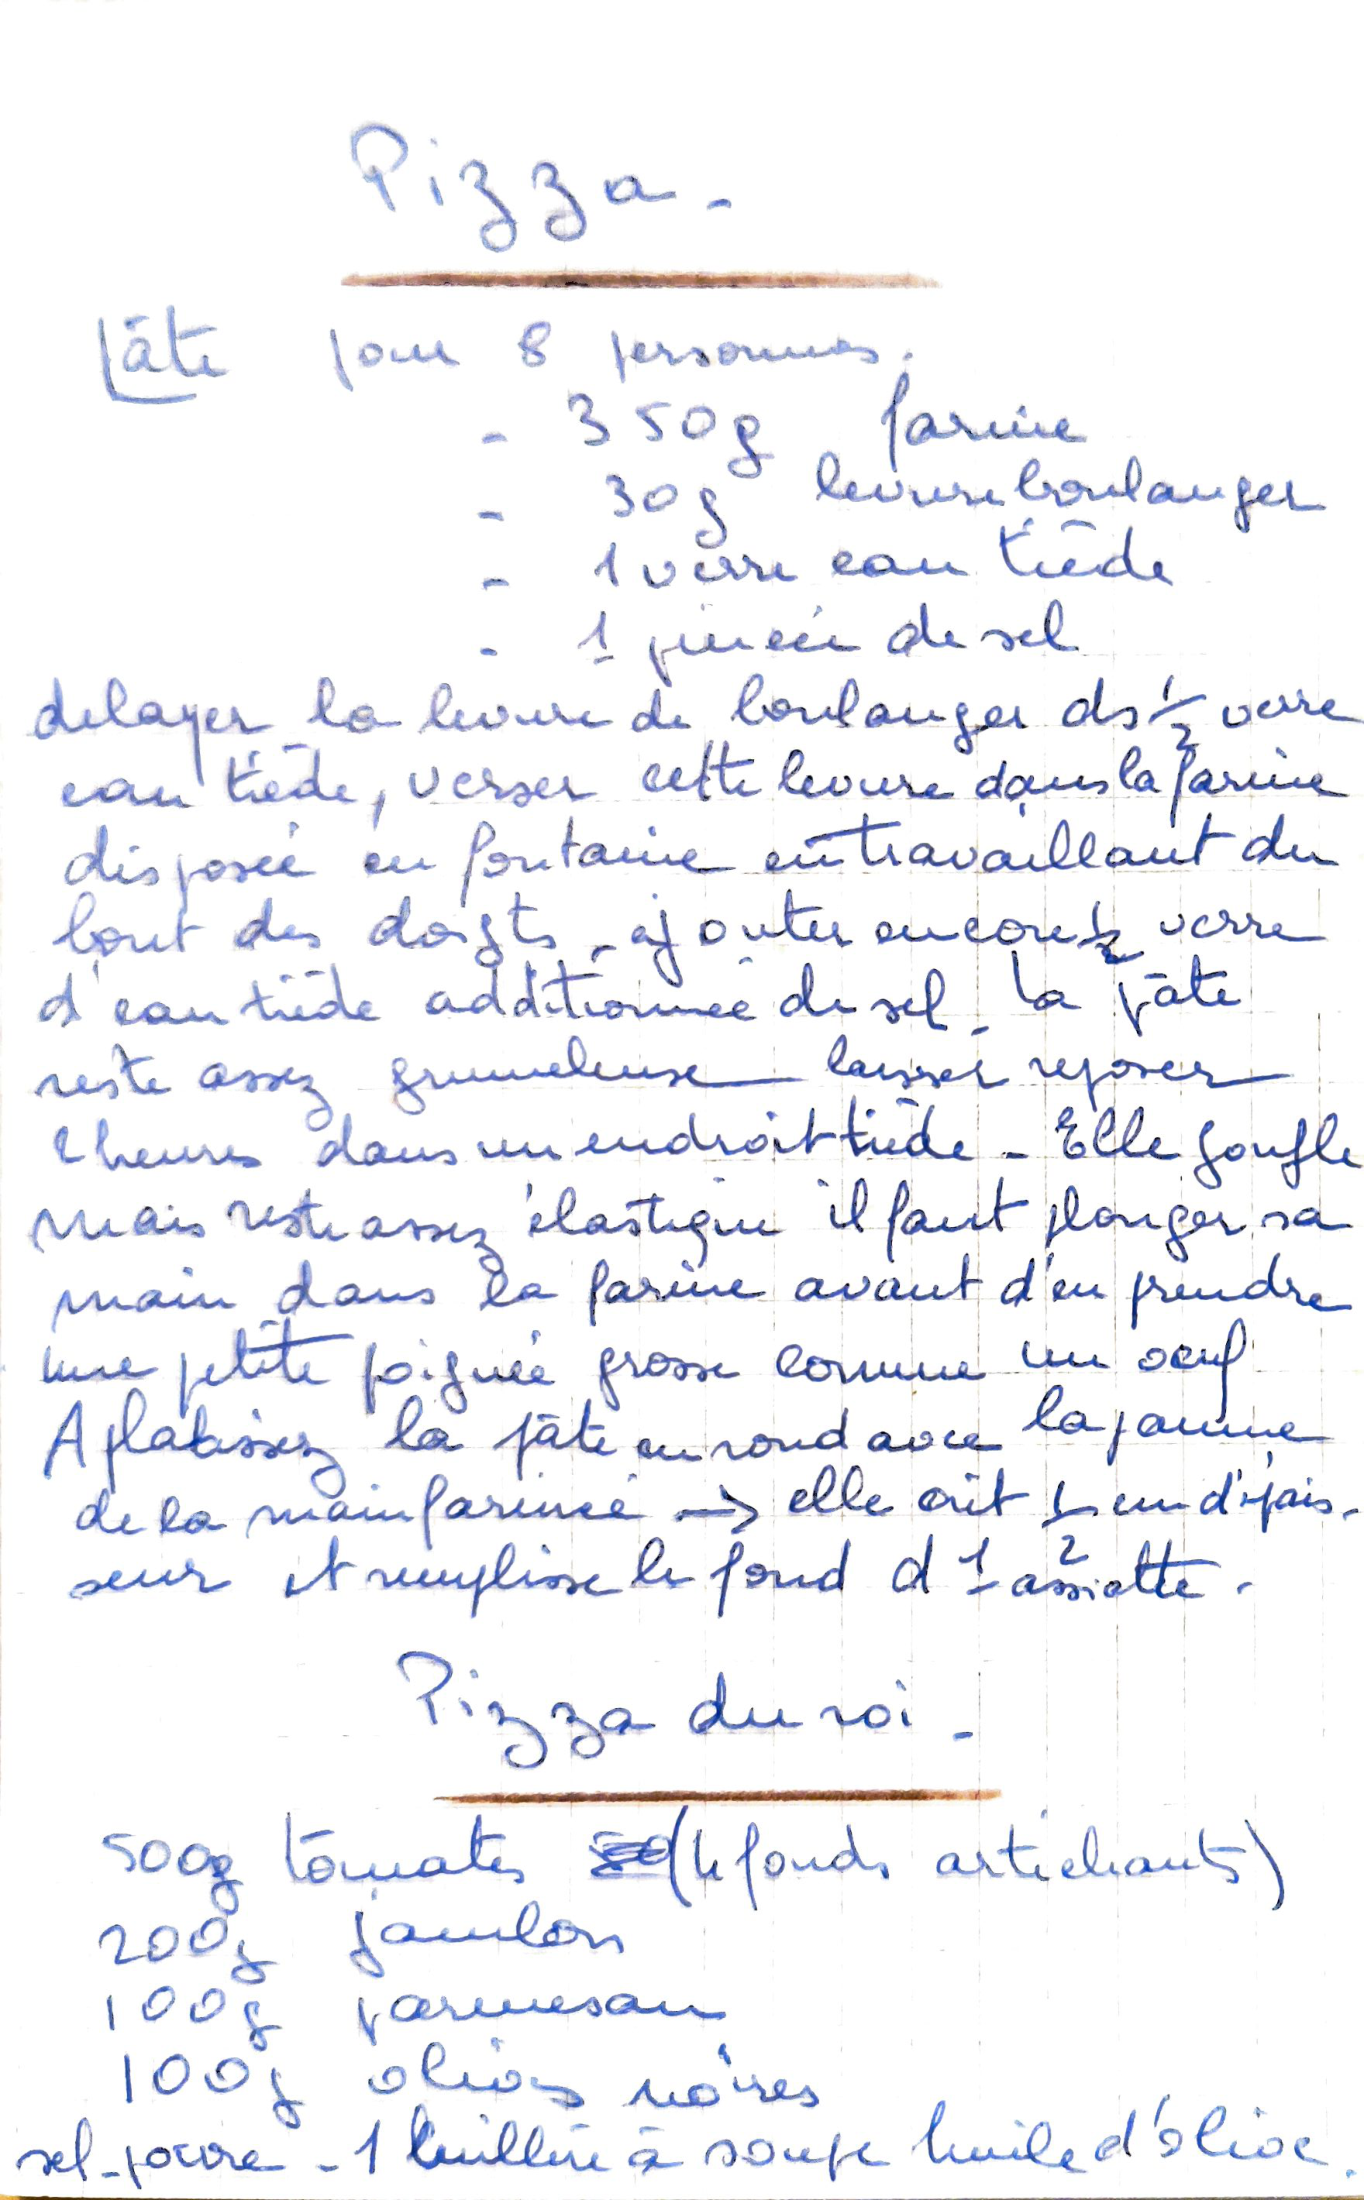 Pizza -
Pâte pour 8 personnes.
- 350g farine
- 30g levure boulanger
- 1 verre eau tiède
- 1 pincée de sel
delayer la levure de boulanger ds 1/2 verre
eau tiède, verser cette levure dans la farine
disposée en fontaine en travaillant du
bout des doigts - ajouter encore 1/2 verre
d'eau tiède additionnée de sel - la pâte
reste assez grumeleuse laisser reposer
2 heures dans un endroit tiède - Elle gonfle
mais reste assez élastique il faut plonger sa
main dans la farine avant d'en prendre
une petite poignée grosse comme un oeuf
Aplatissez la pâte en rond avec la paume
de la main farinée -> elle ait 1/2 cm d'épais-
seur et remplisse le fond d'1 assiette.
Pizza du roi -
500g tomates (4 fonds artichauts)
200g jambon
100g parmesan
100g olives noires
sel - poivre - 1 cuillère à soupe huile d'olive.